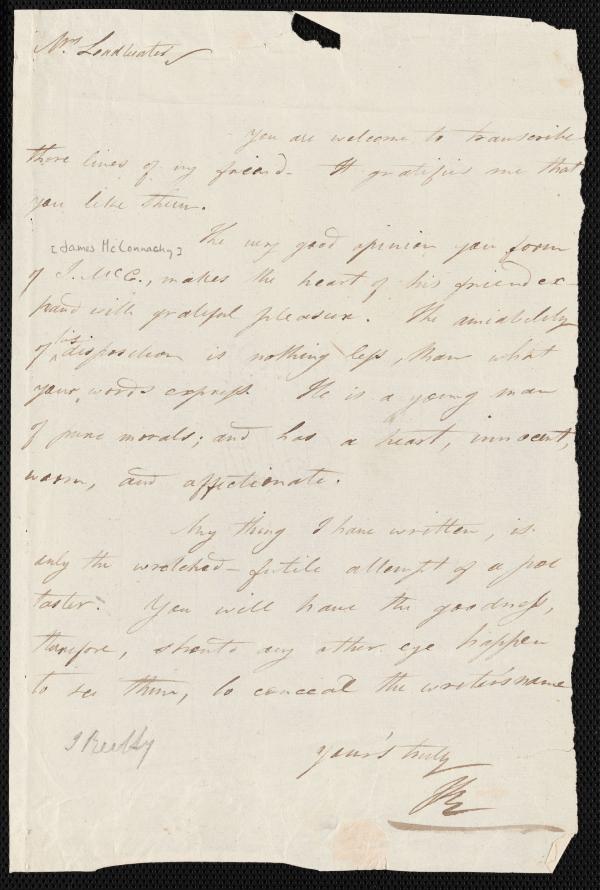 Mrs Leadbeater
You are welcome to transcribe
these lines of my friend - It gratifies me that
you like them.
[James McConnachy] The very good opinion you form
of J. McC., makes the heart of his friend ex-
pand with grateful pleasure. The amiability
of his disposition is nothing less, than what
your words express. He is a young man
of pure morals; and has a heart, innocent,
warm, and affectionate.
Any thing I have written, is
only the wretched - futile attempt of a poe
taster. You will have the goodness,
therefore, should any other eye happen
to see them, to conceal the writer's name
your's truly
JB
J